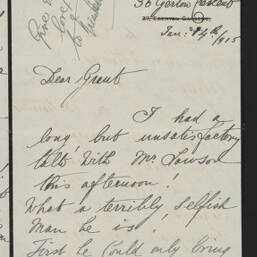 Give
love
to
Egerton Crescent
Jan: 24th/1915
Dear Grant
I had a
long, but unsatisfactory
talk with Mr Lawson
this afternoon!
What a terribly selfish
Man he is!
First he could only bring